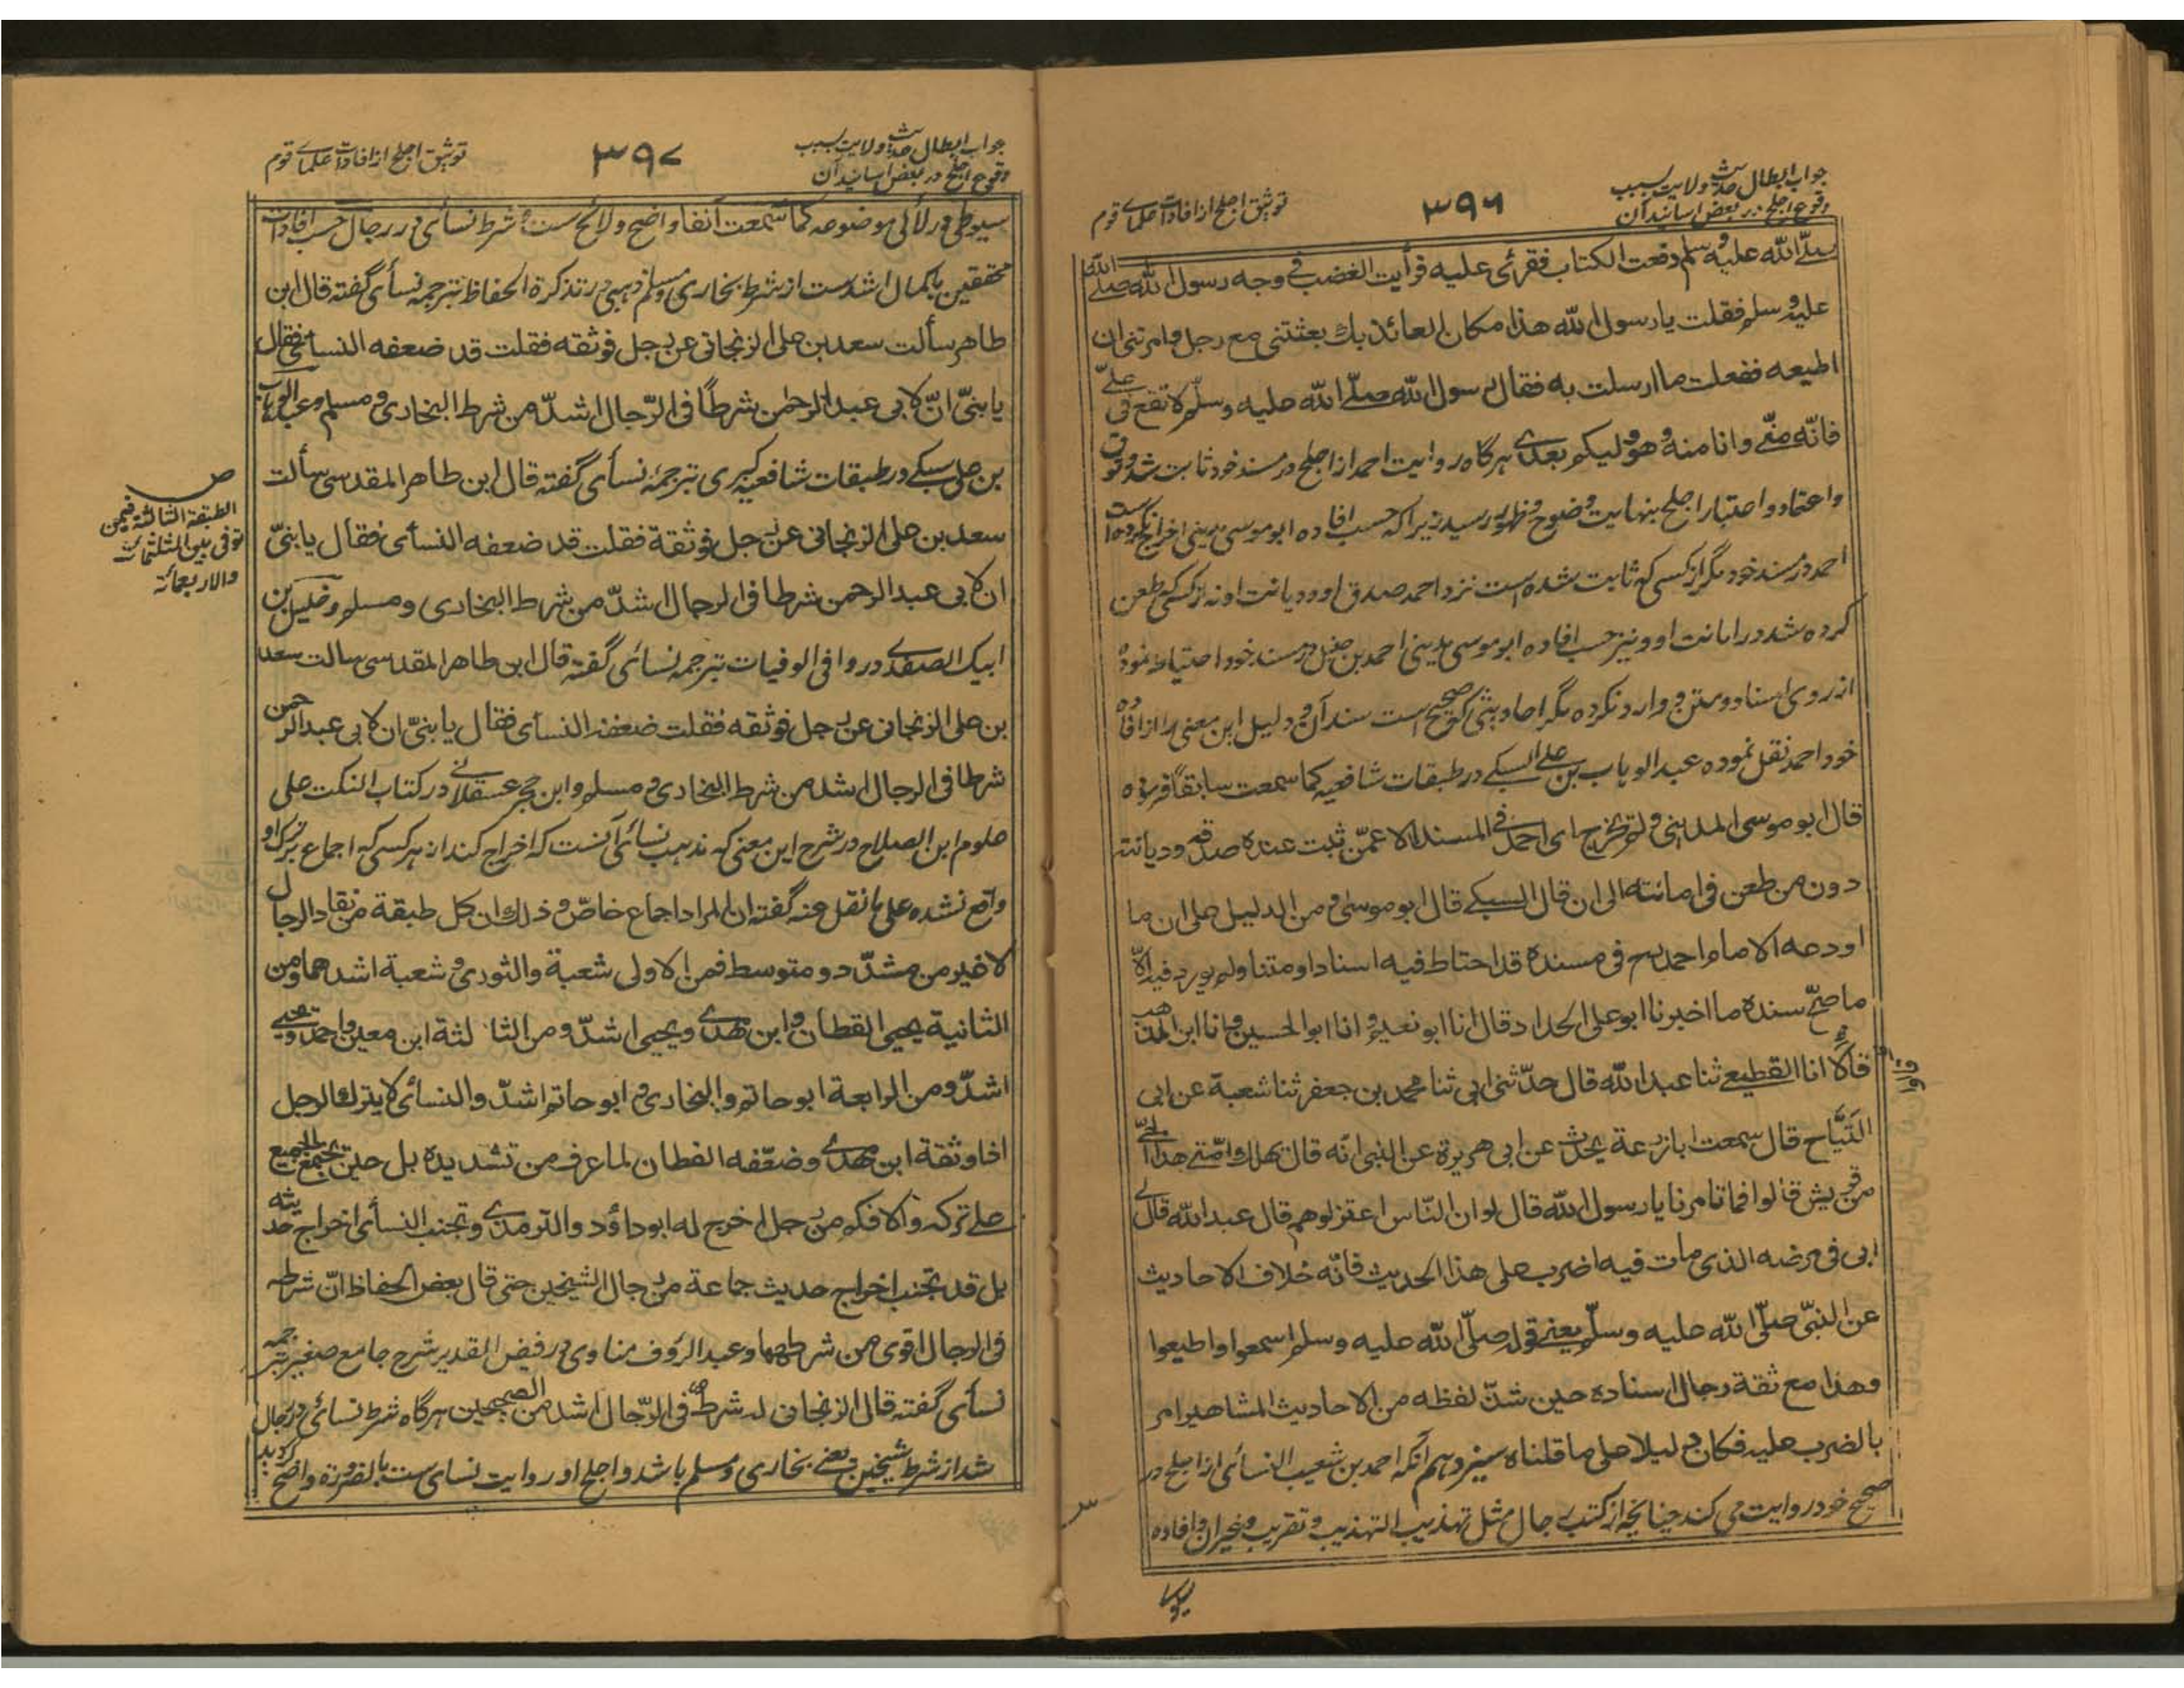 جواب ابطال حدیث ولایت بسبب
وقوع اجلح در بعض اسانید آن
۳۹۶
توثیق اجلح از افادات علمای قوم
صلّے اللّه علیه وسلم دفعت الکتاب فقرئ علیه فرأیت الغضب فی وجه رسول اللّه صلے اللّه
علیه وسلم فقلت یا رسول اللّه هذا مکان العائذ بك بعثتنی مع رجل وامرتنی ان
اطیعه ففعلت ما ارسلت به فقال رسول اللّه صلّے اللّه علیه وسلّم لا تقع فی علیّ
فانّه منّی وانا منه وهو ولیکم بعدی هرگاه روایت احمد از اجلح در مسند خود ثابت شد وثوق
واعتماد واعتبار اجلح بنهایت وضوح وظهور رسید زیرا که حسب افاده ابو موسی مدینی اخراج نکرده است
احمد در مسند خود مگر از کسی که ثابت شده است نزد احمد صدق او ودیانت او نه از کسی که طعن
کرده شد در امانت او ونیز حسب افاده ابو موسی مدینی احمد بن حنبل در مسند خود احتیاط نموده
از روی اسناد ومتن و وارد نکرده مگر احادیثی که صحیح است سند آن و دلیل این معنی را از افاده
خود احمد نقل نموده عبد الوهاب بن علی السبکے در طبقات شافعیه کما سمعت سابقا فرموده
قال ابو موسی المدینی ولم یخرج ای احمد فی المسند الا عمّن ثبت عنده صدقه ودیانته
دون من طعن فی امانته الی ان قال السبکے قال ابو موسی ومن الدلیل علی ان ما
اودعه الامام احمد رح فی مسنده قد احتاط فیه اسنادا ومتنا ولم یورد فیه الّا
ما صحّ سنده ما اخبرنا ابو علی الحداد قال انا ابو نعیم و انا ابو الحسین وانا ابن المذهب
قالا انا القطیعے ثنا عبد اللّه قال حدّثنی ابی ثنا محمد بن جعفر ثنا شعبة عن ابی
التّیّاح قال سمعت ابا زرعة یحدّث عن ابی هریرة عن النبی انّه قال یهلك امّتے هذا الحیّ
من قریش قالوا فما تامرنا یا رسول اللّه قال لو ان النّاس اعتزلوهم قال عبد اللّه قال لے
ابی فی مرضه الذی مات فیه اضرب علی هذا الحدیث فانّه خلاف الاحادیث
عن النبیّ صلّی اللّه علیه وسلّم یعنی قوله صلّی اللّه علیه وسلم اسمعوا واطیعوا
وهذا مع ثقة رجال اسناده حین شذّ لفظه من الاحادیث المشاهیر امر
بالضرب علیه فکان دلیلا علی ما قلناه سیزدهم آنکه احمد بن شعیب النسائی از اجلح در
صحیح خود روایت می کند چنانچه از کتب رجال مثل تهذیب التهذیب وتقریب وغیر آن وافاده
جواب ابطال حدیث ولایت بسبب
وقوع اجلح در بعض اسانید آن
۳۹۷
توثیق اجلح از افادات علمای قوم
سیوطی در لآلی موضوعه کما سمعت آنفا واضح ولائح ست و شرط نسائی در رجال حسب افادات
محققین باکمال اشد ست از شرط بخاری ومسلم ذهبی در تذکرة الحفاظ بترجمه نسائی گفته قال ابن
طاهر سألت سعد بن علی الزنجانی عن رجل فوثقه فقلت قد ضعفه النسائی فقال
یا بنیّ انّ لابی عبد الرحمن شرطاً فی الرّجال اشدّ من شرط البخاری ومسلم وعبد الوهاب
بن علی سبکے در طبقات شافعیه کبری بترجمهٔ نسائی گفته قال ابن طاهر المقدسی سألت
سعد بن علی الزنجانی عن رجل فوثقة فقلت قد ضعفه النسائی فقال یا بنیّ
ان لابی عبد الرحمن شرطا فی الرجال اشدّ من شرط البخاری ومسلم وخلیل بن
ایبک الصفدی در وافی الوفیات بترجمه نسائی گفته قال ابن طاهر المقدسی سالت سعد
بن علی الزنجانی عن رجل فوثقه فقلت ضعفه النسائی فقال یا بنیّ ان لابی عبد الرحمن
شرطا فی الرجال اشد من شرط البخاری ومسلم وابن حجر عسقلانے در کتاب النکت علی
علوم ابن الصلاح در شرح این معنی که مذهب نسائی آنست که اخراج کند از هر کسی که اجماع بر ترک او
واقع نشده علی ما نقل عنه گفته ان المراد اجماع خاصّ وذلك ان کل طبقة من نقاد الرجال
لا تخیر من مشدّد ومتوسط فمن الاولی شعبة والثوری وشعبة اشدهما ومن
الثانیة یحیی القطان وابن مهدی ویحیی اشدّ ومن الثالثة ابن معین واحمد ویحیی
اشدّ ومن الرابعة ابو حاتم والبخاری وابو حاتم اشدّ والنسائی لا یترك الرجل
اذا وثقة ابن مهدی وضعّفه القطان لما عرف من تشدیده بل حین یجتمع الجمیع
علے ترکه والا فکم من رجل اخرج له ابو داؤد والترمذی وتجنب النسائی اخراج حدیثه
بل قد تجنب اخراج حدیث جماعة من رجال الشیخین حتی قال بعض الحفاظ انّ شرطه
فی الرجال اقوی من شرطهما وعبد الرؤف مناوی در فیض القدیر شرح جامع صغیر بترجمه
نسائی گفته قال الزنجانی له شرط فی الرّجال اشد من الصحیحین هرگاه شرط نسائی در رجال
شد از شرط شیخین یعنے بخاری ومسلم باشد واجلح او روایت نسائی ست بالضرورة واضح گردید
ص
الطبقة الثالثة فیمن
توفی بین الثلثمائة
والاربعمائة